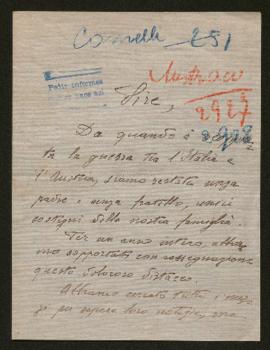 Comelli 251
Autriche
Petit informes
2927
2928
Sire,
Da quando è scoppia
ta la guerra tra l'Italia e
l'Austria, siamo restate senza
padre e senza fratello, unici
sostegni della nostra famiglia.
Per un anno intero, abbia
mo sopportati con rassegnazione
questo doloroso distacco.
Abbiamo cercato tutti i mez
zi per sapere loro notizie, ma